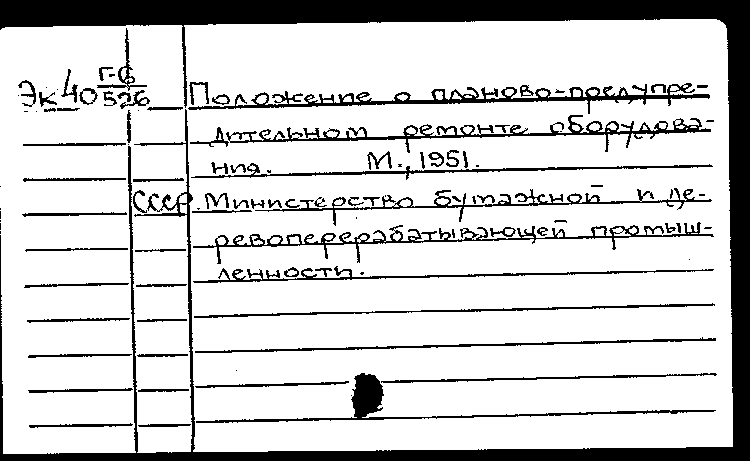 Эк 40 Г-6/526 Положение о планово-предупре-
дительном ремонте оборудова-
ния. М., 1951.
СССР. Министерство бумажной и де-
ревоперерабатывающей промыш-
ленности.